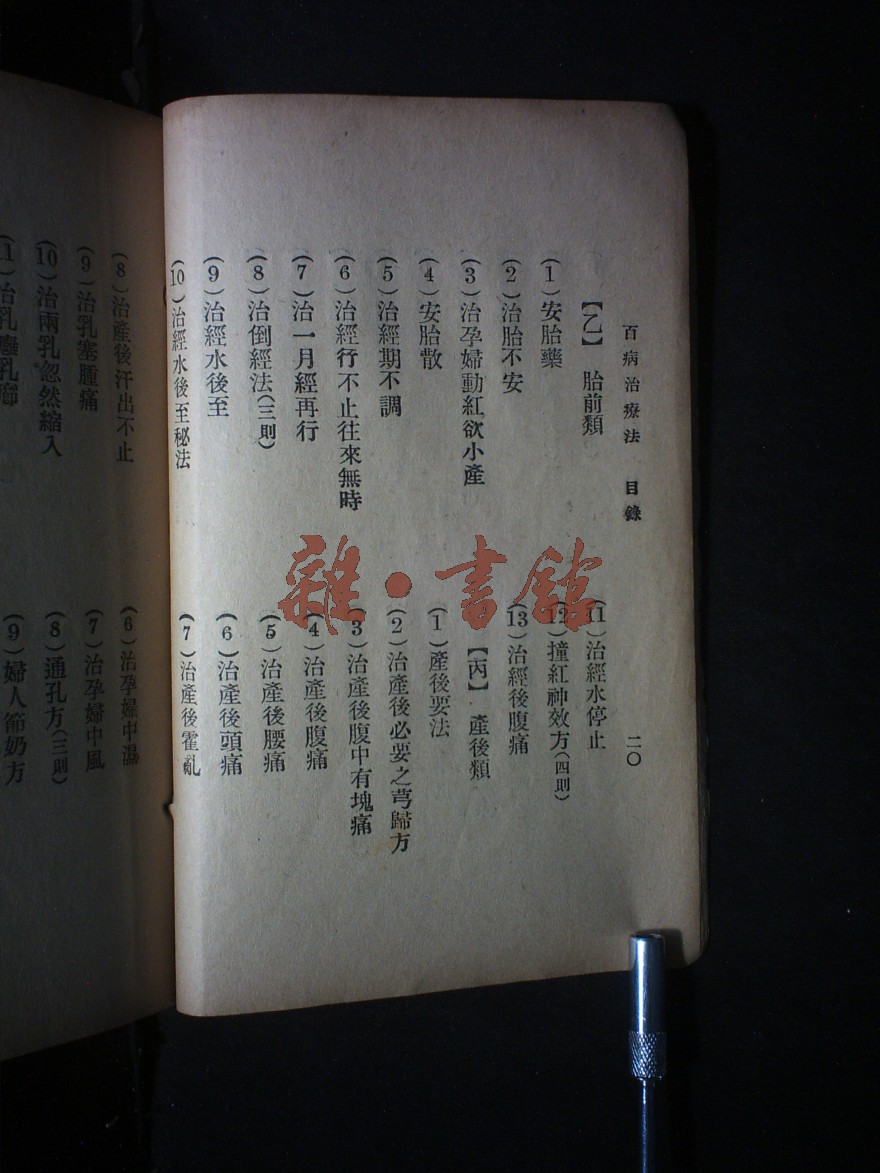 百病治療法　目錄
二〇
【乙】　胎前類
(1)安胎藥
(2)治胎不安
(3)治孕婦動紅欲小產
(4)安胎散
(5)治經期不調
(6)治經行不止往來無時
(7)治一月經再行
(8)治倒經法(三則)
(9)治經水後至
(10)治經水後至秘法
(11)治經水停止
(12)撞紅神效方(四則)
(13)治經後腹痛
【丙】　產後類
(1)產後要法
(2)治產後必要之芎歸方
(3)治產後腹中有塊痛
(4)治產後腹痛
(5)治產後腰痛
(6)治產後頭痛
(7)治產後霍亂
(8)治產後汗出不止
(9)治乳塞腫痛
(10)治兩乳忽然縮入
(6)治孕婦中濕
(7)治孕婦中風
(8)通孔方(三則)
(9)婦人節奶方
雜·書館